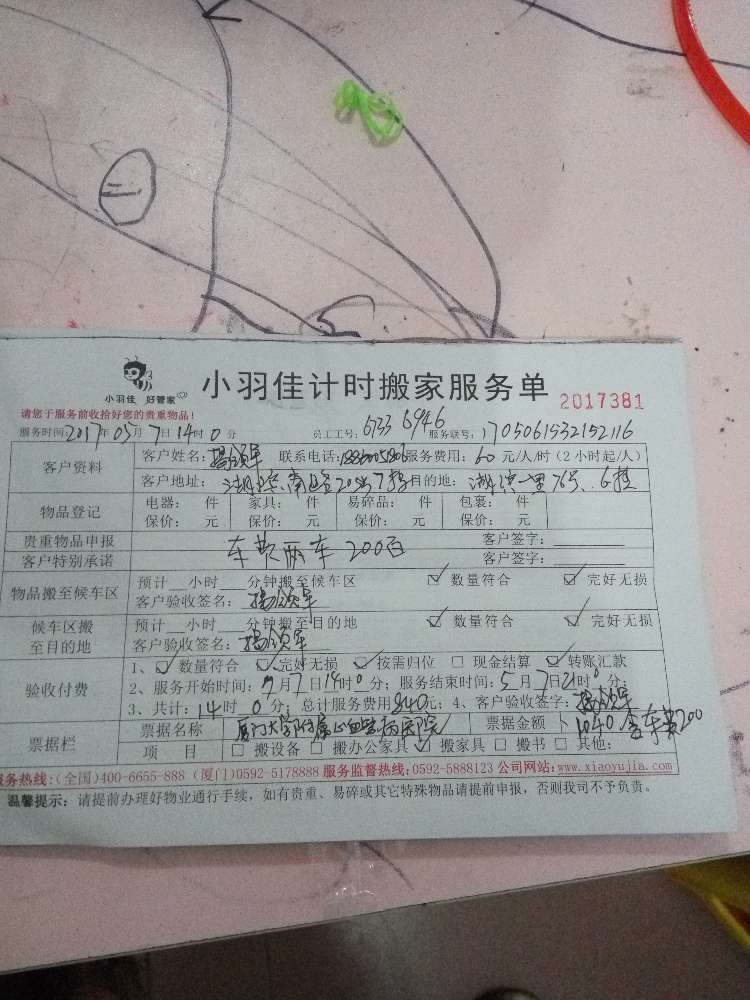 小羽佳 好管家
小羽佳计时搬家服务单
2017381
请您于服务前收拾好您的贵重物品！
服务时间：2017年05月7日14时0分 员工工号：6733 6946 服务联号：1705061532152116
客户资料 客户姓名： 联系电话： 服务费用：60元/人/时（2小时起/人）
客户地址： 目的地：
物品登记 电器： 件 家具： 件 易碎品： 件 包裹： 件
保价： 元 保价： 元 保价： 元 保价： 元
贵重物品申报 客户签字：
客户特别承诺 车费两车200百 客户签字：
物品搬至候车区 预计__小时__分钟搬至候车区 ☑数量符合 ☑完好无损
客户验收签名：
候车区搬至目的地 预计__小时__分钟搬至目的地 ☑数量符合 ☑完好无损
客户验收签名：
验收付费 1、☑数量符合 ☑完好无损 ☑按需归位 □现金结算 ☑转账汇款
2、服务开始时间：7月7日14时0分；服务结束时间：5月7日21时0分；
3、共计：14时0分；总计服务费用840元；4、客户验收签字：
票据栏 票据名称 厦门大学附属心血管病医院 票据金额 1040含车费200
项 目 □搬设备 □搬办公家具 ☑搬家具 □搬书 □其他：
服务热线：(全国)400-6655-888 (厦门)0592-5178888 服务监督热线：0592-5888123 公司网站：www.xiaoyujia.com
温馨提示：请提前办理好物业通行手续，如有贵重、易碎或其它特殊物品请提前申报，否则我司不予负责。